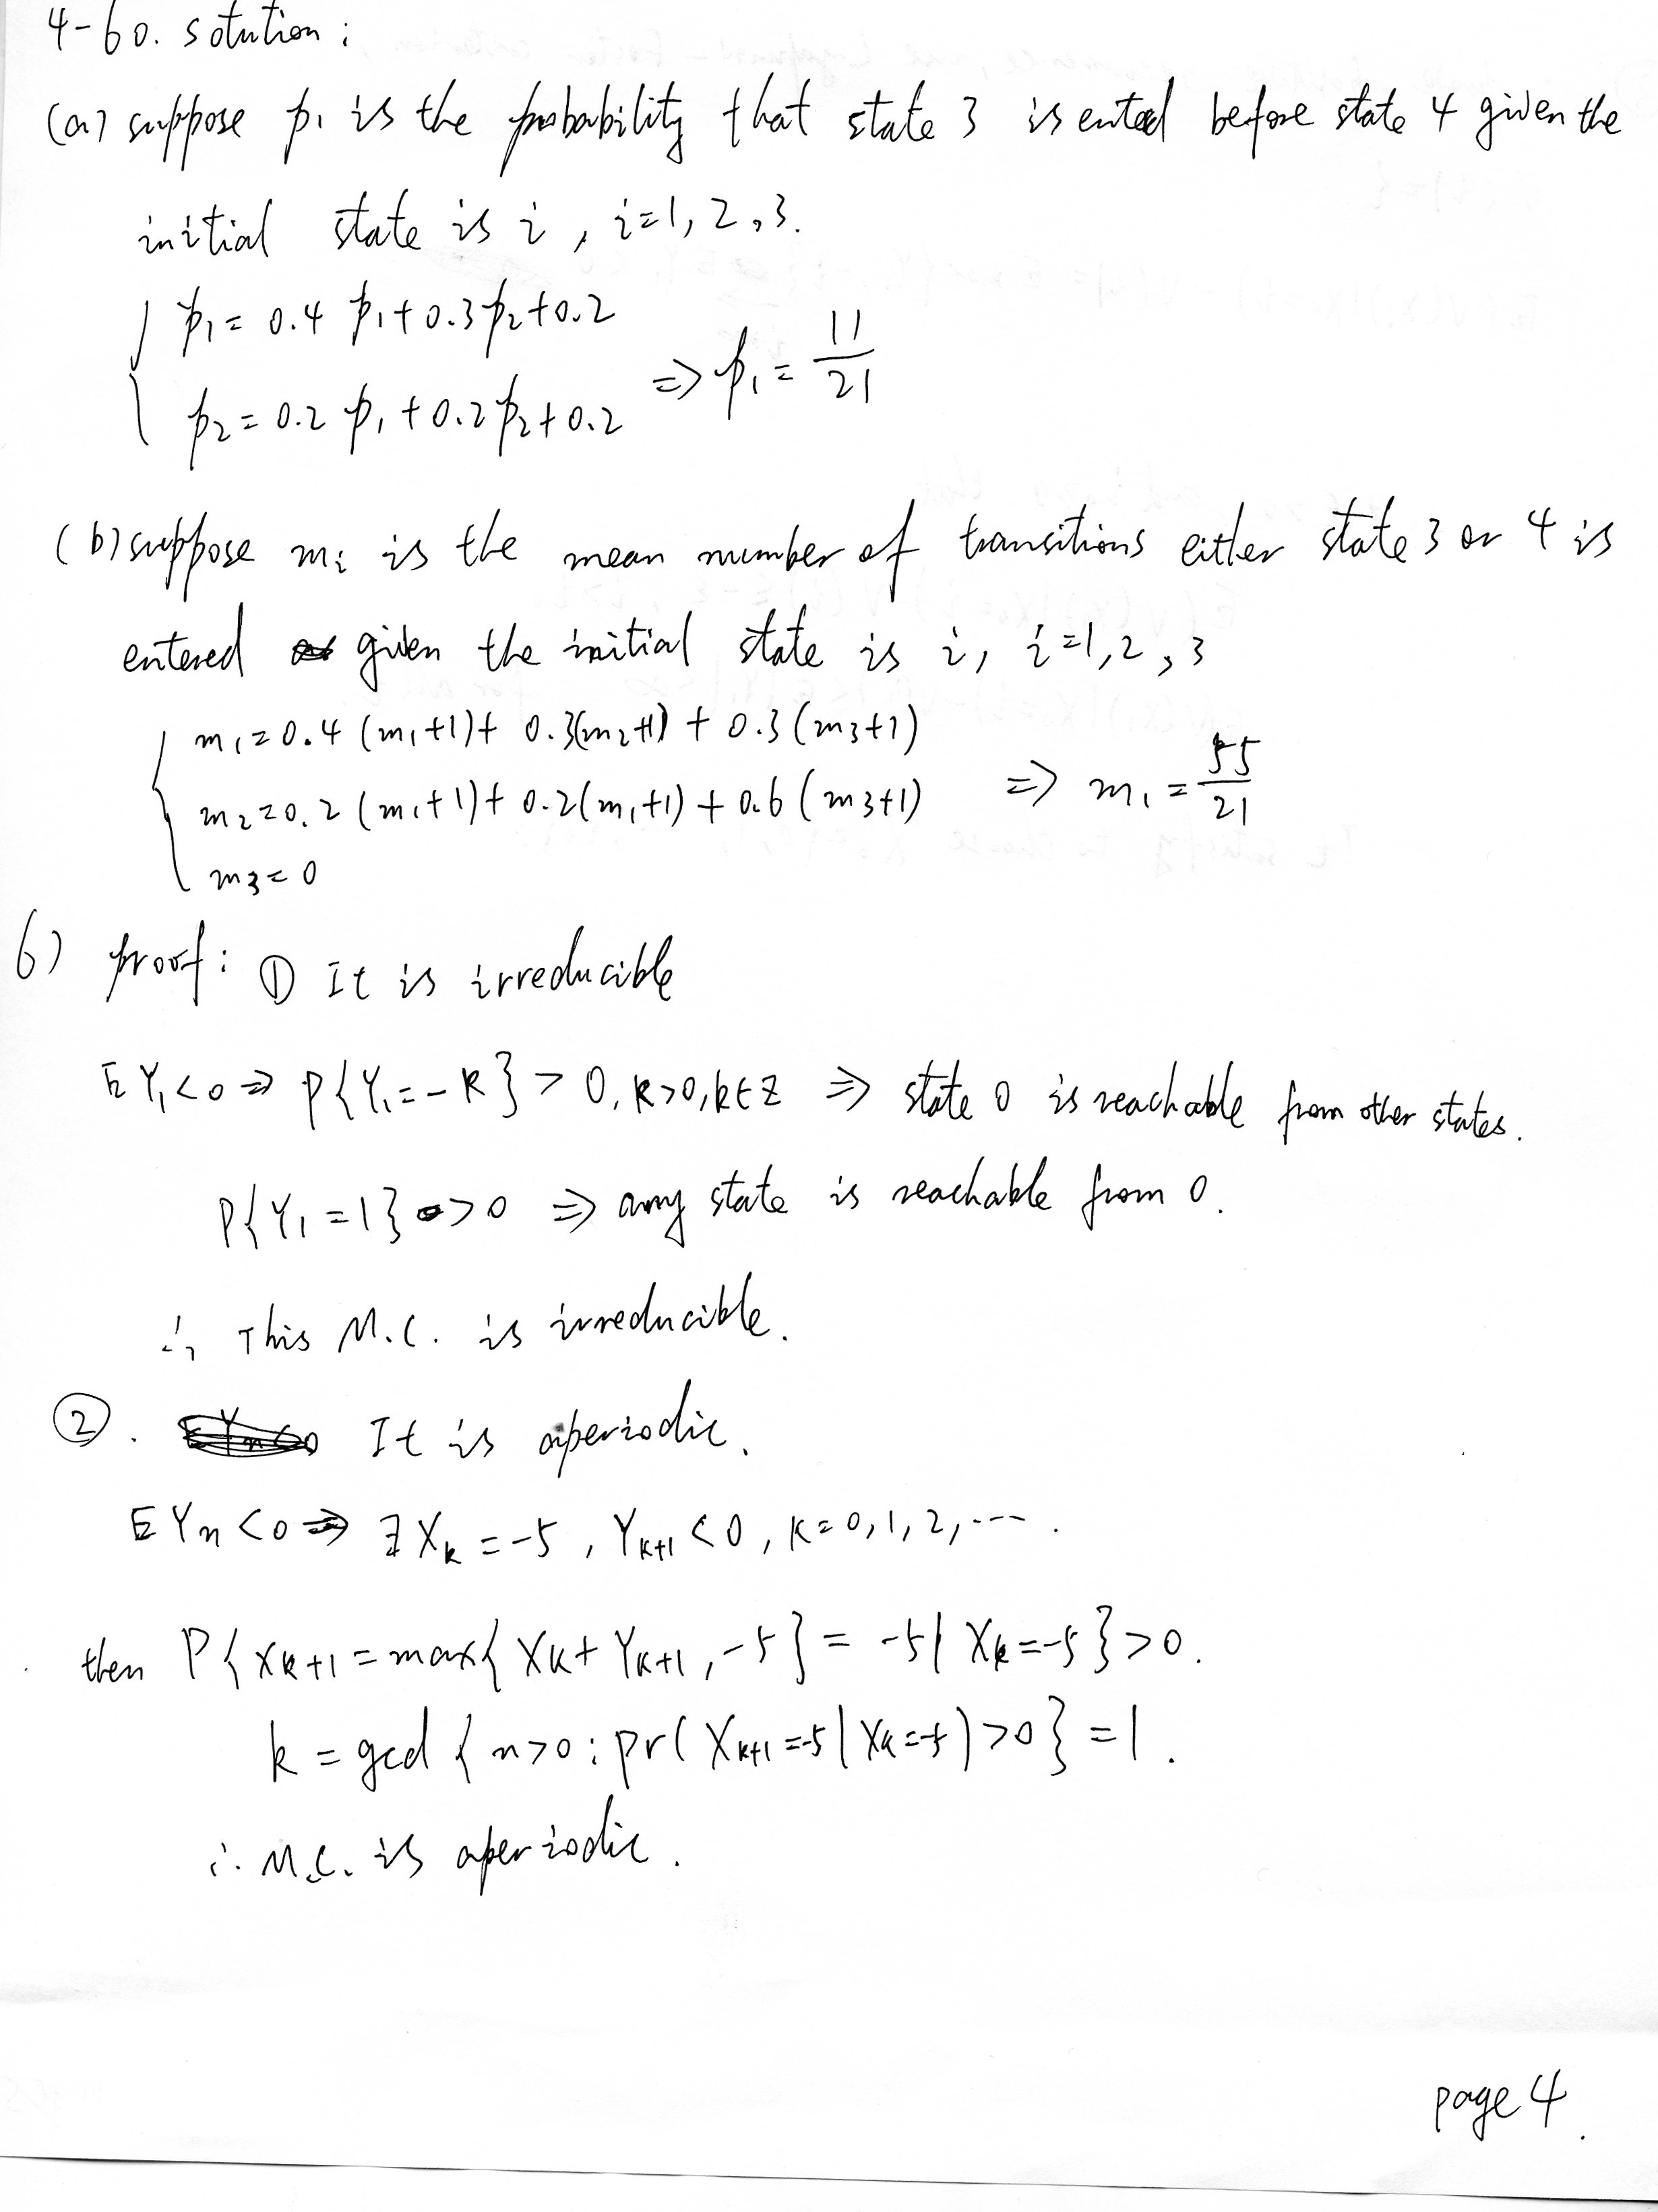 4-60. solution:
(a) suppose p₁ is the probability that state 3 is entered before state 4 given the
initial state is i, i=1, 2, 3.
p₁ = 0.4 p₁ + 0.3 p₂ + 0.2
p₂ = 0.2 p₁ + 0.2 p₂ + 0.2 => p₁ = 11/21
(b) suppose mᵢ is the mean number of transitions either state 3 or 4 is
entered given the initial state is i, i=1, 2, 3
m₁ = 0.4 (m₁+1) + 0.3(m₂+1) + 0.3 (m₃+1)
m₂ = 0.2 (m₁+1) + 0.2(m₁+1) + 0.6 (m₃+1) => m₁ = 55/21
m₃ = 0
6) proof: ① It is irreducible
EY₁<0 => P{Y₁=-k} > 0, k>0, k∈Z => state 0 is reachable from other states.
P{Y₁=1} >0 => any state is reachable from 0.
∴ This M.C. is irreducible.
②. It is aperiodic.
EYn<0 => ∃Xk = -5, Yk+1 <0, k=0, 1, 2, ....
then P{Xk+1 = max{Xk + Yk+1, -5} = -5 | Xk=-5} >0.
k = gcd {n>0: pr(Xk+1=-5 | Xk=-5) >0} = 1.
∴ M.C. is aperiodic.
page 4.